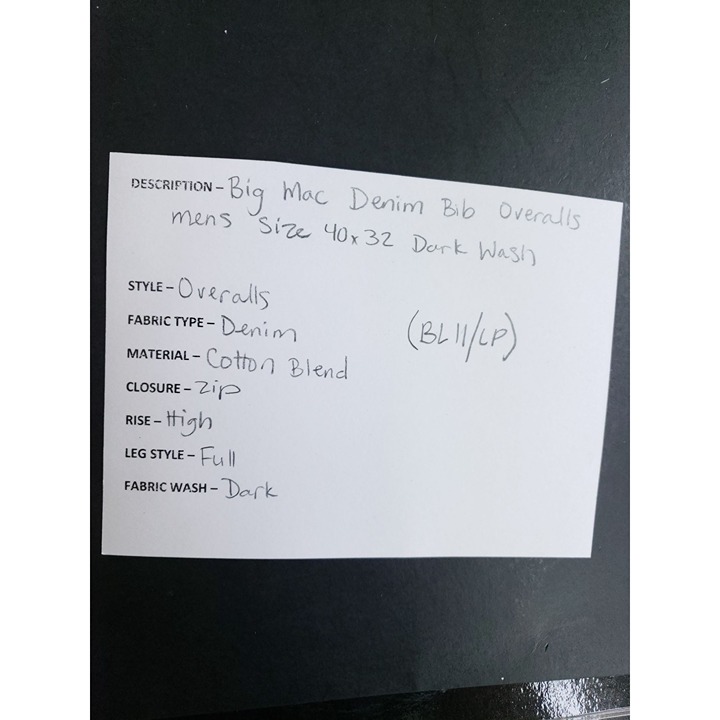 DESCRIPTION – Big Mac Denim Bib Overalls
mens Size 40x32 Dark Wash
STYLE – Overalls
FABRIC TYPE – Denim
(BL11/LP)
MATERIAL – Cotton Blend
CLOSURE – Zip
RISE – High
LEG STYLE – Full
FABRIC WASH – Dark